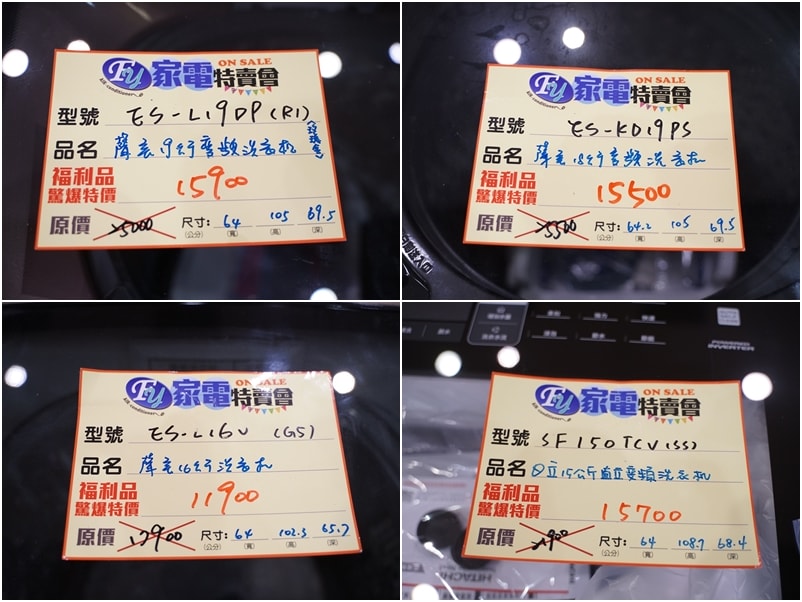 Fu 家電特賣會 ON SALE
型號 ES-L19DP(R1)
品名 聲寶19公斤變頻洗衣機
福利品
驚爆特價 15900
原價 25000 尺寸: 64 105 69.5
(公分) (寬) (高) (深)
Fu 家電特賣會 ON SALE
型號 ES-KD19PS
品名 聲寶18公斤變頻洗衣機
福利品
驚爆特價 15500
原價 25500 尺寸: 64.2 105 69.5
(公分) (寬) (高) (深)
Fu 家電特賣會 ON SALE
型號 ES-L16V (G5)
品名 聲寶16公斤洗衣機
福利品
驚爆特價 11900
原價 17900 尺寸: 64 102.3 65.7
(公分) (寬) (高) (深)
POWERED
INVERTER
Fu 家電特賣會 ON SALE
型號 SF150TCV(SS)
品名 日立15公斤直立變頻洗衣機
福利品
驚爆特價 15700
原價 尺寸: 64 108.7 68.4
(公分) (寬) (高) (深)
HITACHI